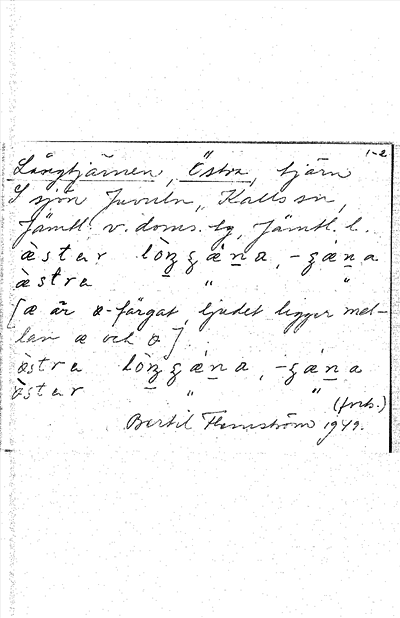 1-2
Långtjärnen, Östra, tjärn
S sjön Juvuln, Kalls sn,
Jämtl. v. doms. lg, Jämtl. l.
æ̀star lòŋgǽna, -gǽna
æ̀stra " "
[æ är ö-färgat, ljudet ligger mel-
lan æ och ö]
östra lòŋgǽna, -gǽna
östar " "
(forts.)
Bertil Flemström 1949.